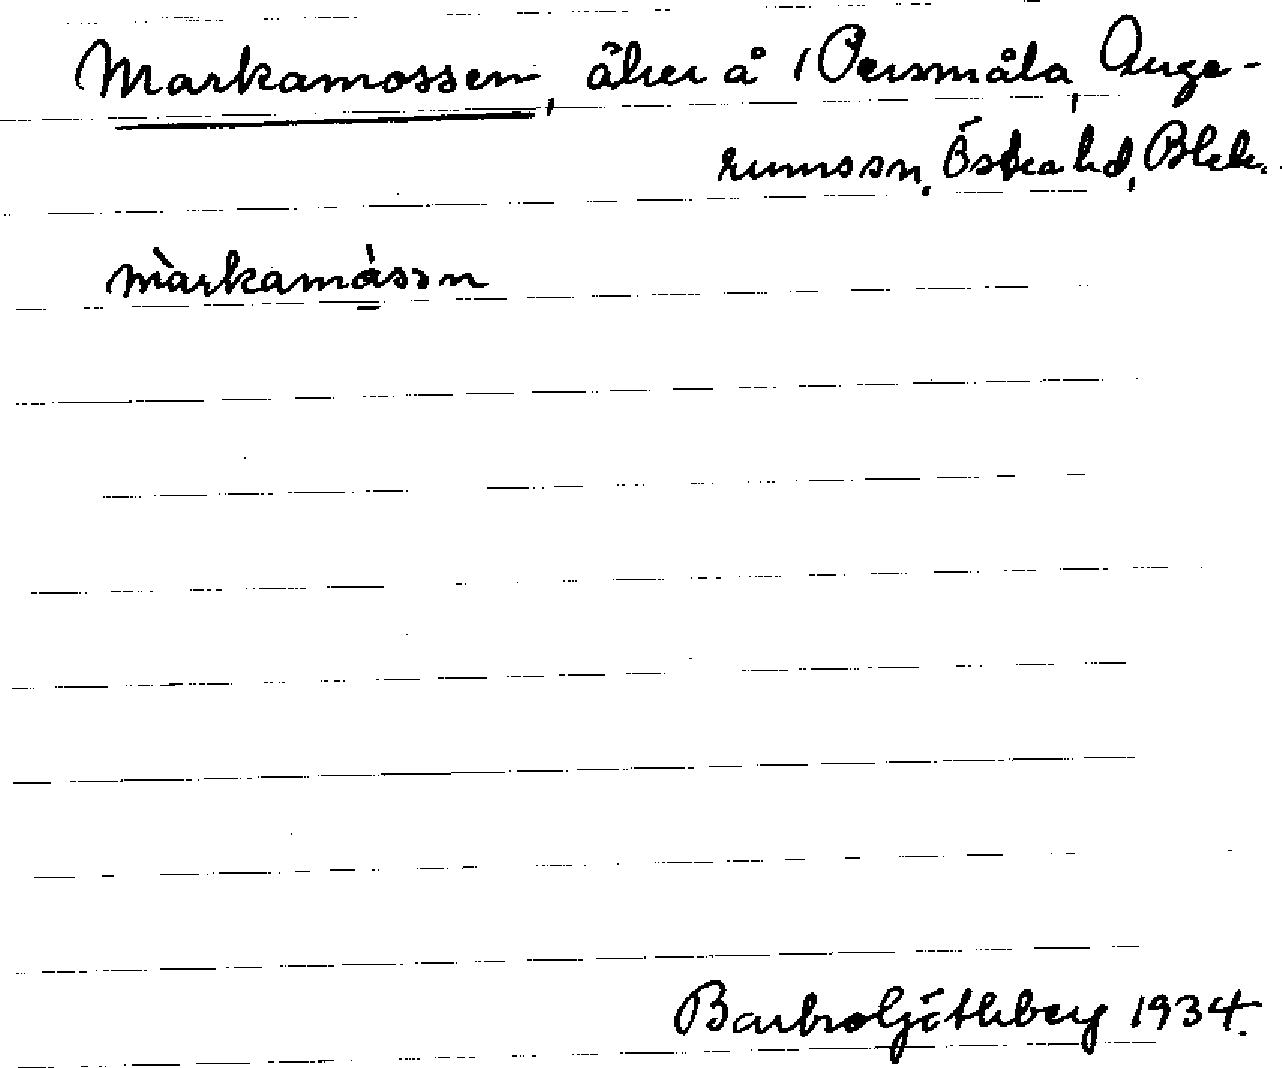 Markamossen, åker å Persmåla, Auge-
rumssn, Östra hd, Blek.
màrkamåssn
Barbro Götheberg 1934.